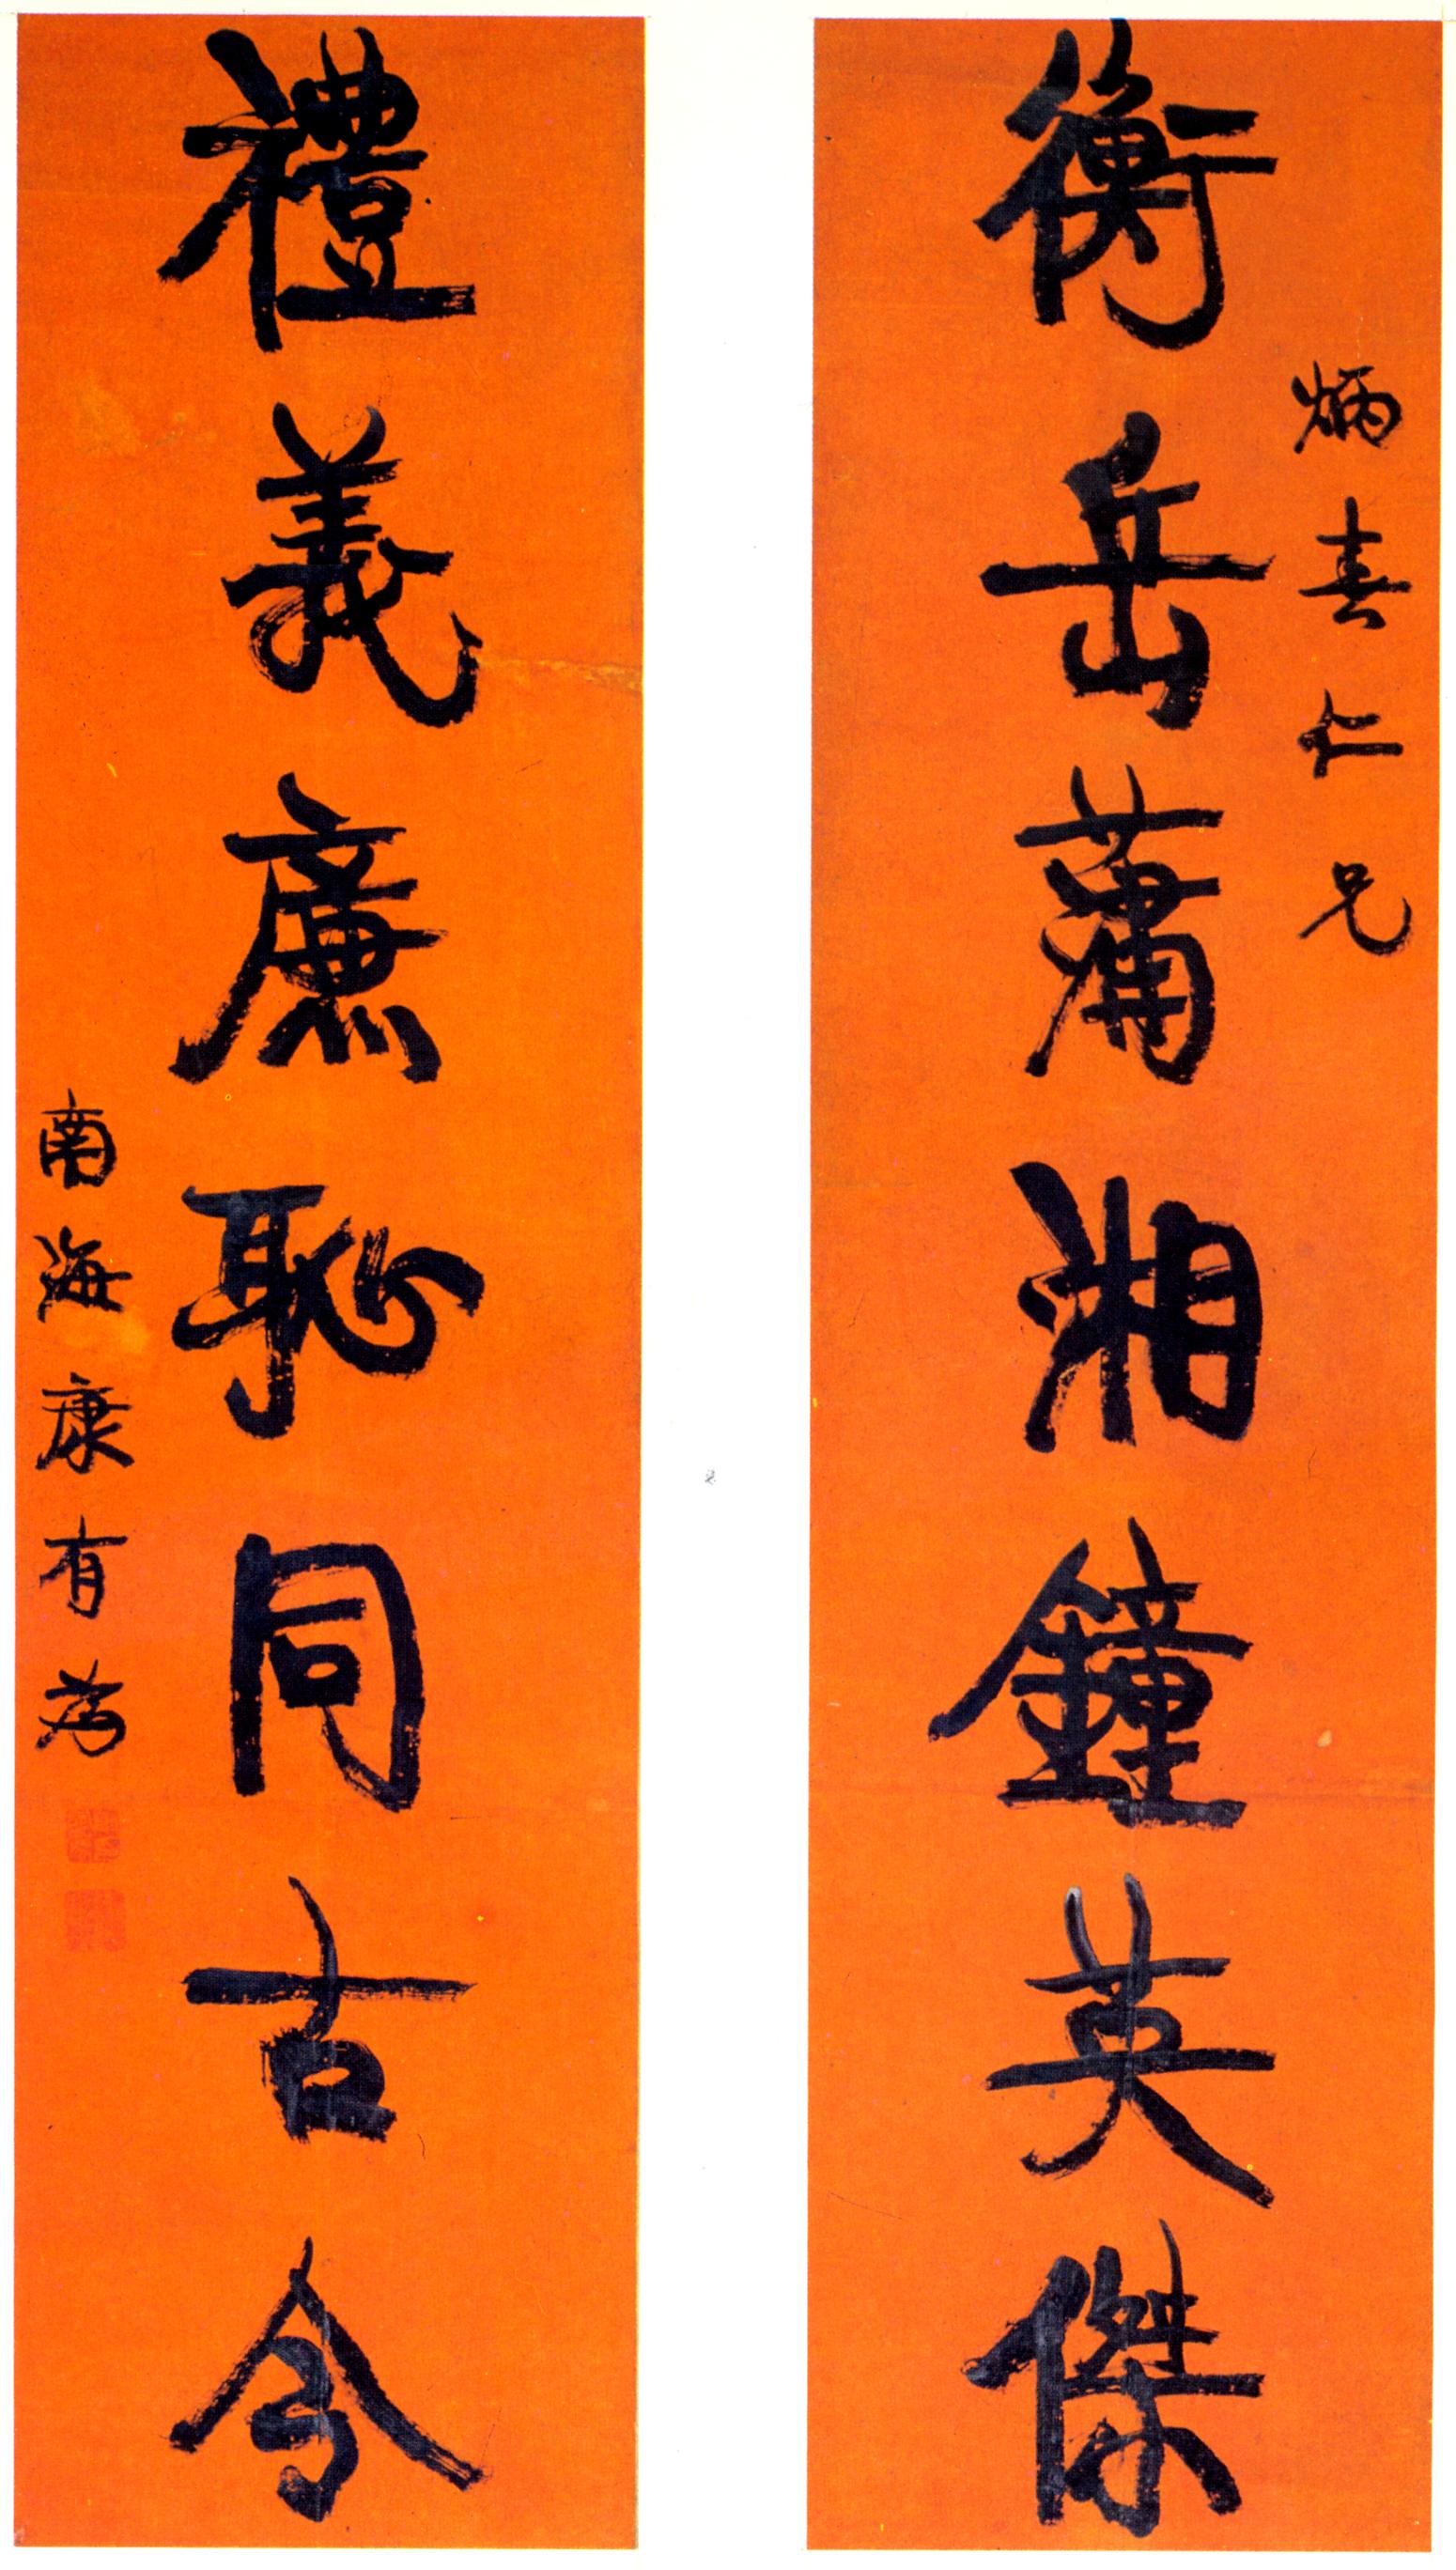 衡岳蕭湘鐘英傑
炳春仁兄
禮義廉恥同古今
南海康有為